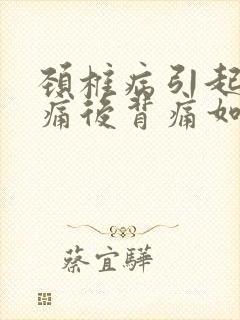 頚椎病引起
痛後背痛如
蔡宜驊